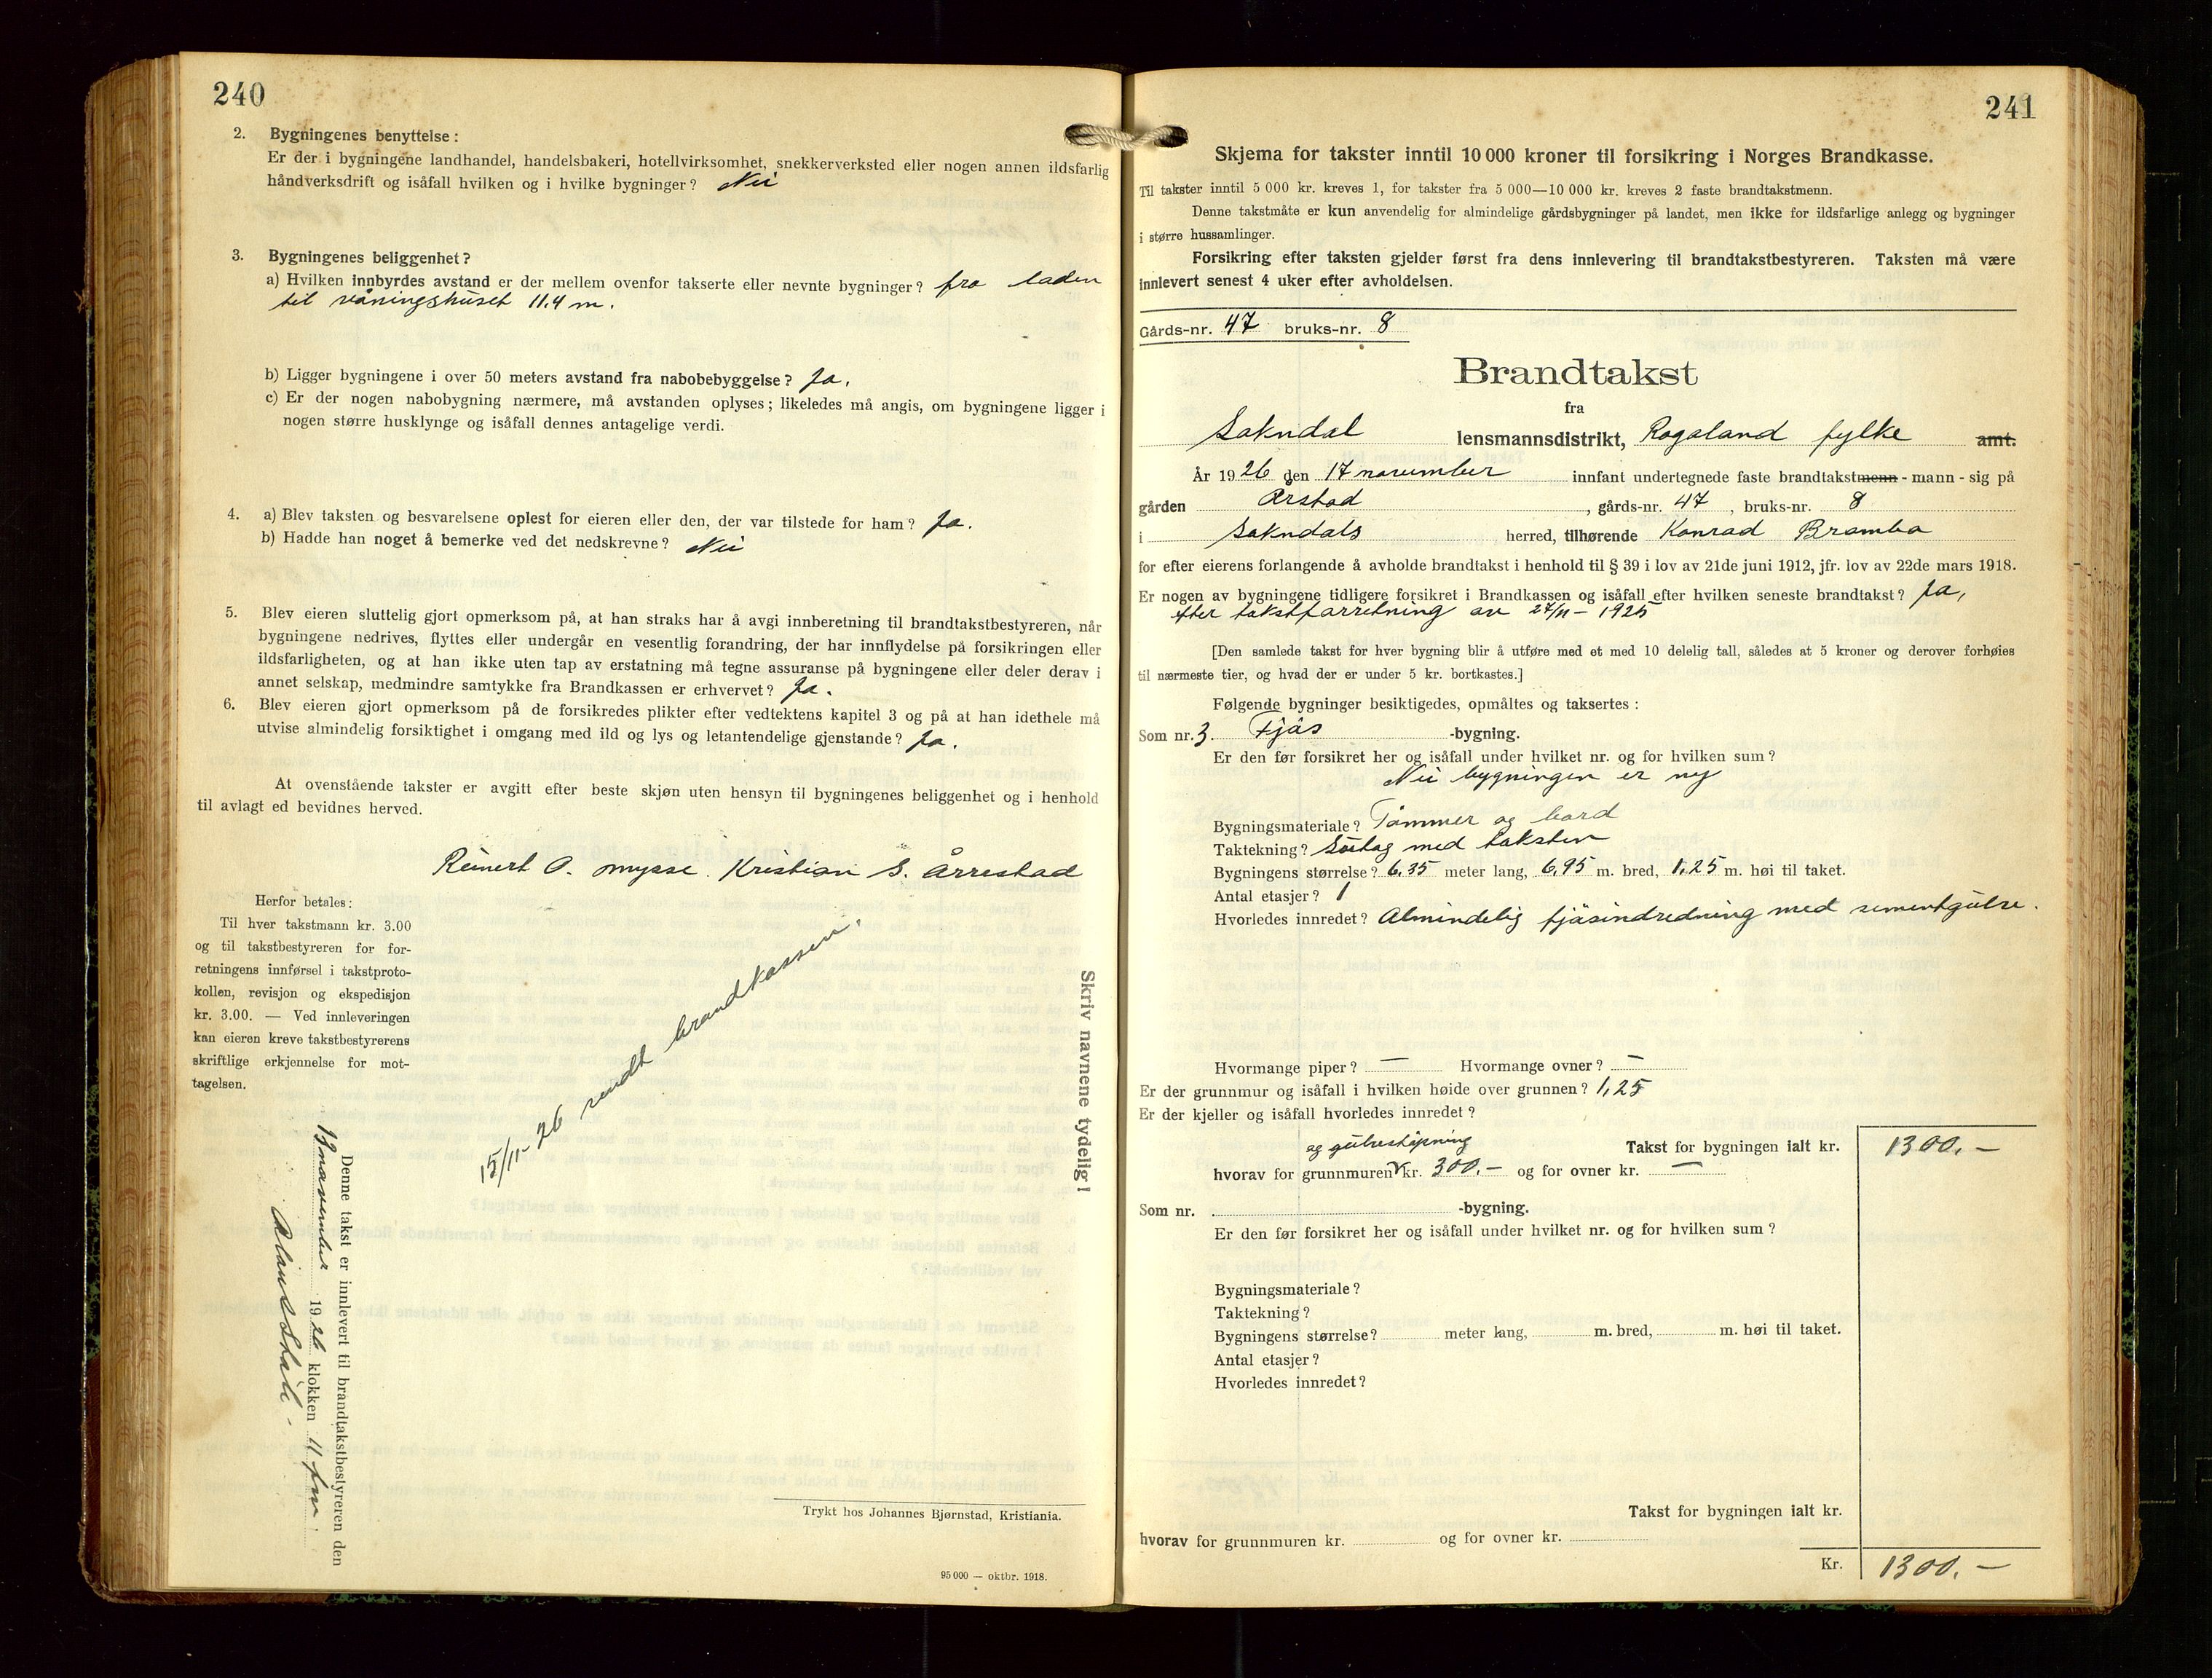 240
2. Bygningenes benyttelse:
Er der i bygningene landhandel, handelsbakeri, hotellvirksomhet, snekkerverksted eller nogen annen ildsfarlig
håndverksdrift og isåfall hvilken og i hvilke bygninger? Nei
3. Bygningenes beliggenhet?
a) Hvilken innbyrdes avstand er der mellem ovenfor takserte eller nevnte bygninger? fra laden
til våningshuset 11.4 m.
b) Ligger bygningene i over 50 meters avstand fra nabobebyggelse? Ja.
c) Er der nogen nabobygning nærmere, må avstanden oplyses; likeledes må angis, om bygningene ligger i
nogen større husklynge og isåfall dennes antagelige verdi.
4. a) Blev taksten og besvarelsene oplest for eieren eller den, der var tilstede for ham? Ja.
b) Hadde han noget å bemerke ved det nedskrevne? Nei
5. Blev eieren sluttelig gjort opmerksom på, at han straks har å avgi innberetning til brandtakstbestyreren, når
bygningene nedrives, flyttes eller undergår en vesentlig forandring, der har innflydelse på forsikringen eller
ildsfarligheten, og at han ikke uten tap av erstatning må tegne assuranse på bygningene eller deler derav i
annet selskap, medmindre samtykke fra Brandkassen er erhvervet? Ja.
6. Blev eieren gjort opmerksom på de forsikredes plikter efter vedtektens kapitel 3 og på at han idethele må
utvise almindelig forsiktighet i omgang med ild og lys og letantendelige gjenstande? Ja.
At ovenstående takster er avgitt efter beste skjøn uten hensyn til bygningenes beliggenhet og i henhold
til avlagt ed bevidnes herved.
Reinert O. Mysse. Kristian S. Årrestad
Herfor betales:
Til hver takstmann kr. 3.00
og til takstbestyreren for for-
retningens innførsel i takstproto-
kollen, revisjon og ekspedisjon
kr. 3.00. — Ved innleveringen
kan eieren kreve takstbestyrerens
skriftlige erkjennelse for mot-
tagelsen.
15/11-26 sendt brandkassen.
Skriv navnene tydelig!
Denne takst er innlevert til brandtakstbestyreren den
13 november 1926 klokken 11 fm.
Trykt hos Johannes Bjørnstad, Kristiania.
95 000 — oktbr. 1918.
241
Skjema for takster inntil 10 000 kroner til forsikring i Norges Brandkasse.
Til takster inntil 5 000 kr. kreves 1, for takster fra 5 000—10 000 kr. kreves 2 faste brandtakstmenn.
Denne takstmåte er kun anvendelig for almindelige gårdsbygninger på landet, men ikke for ildsfarlige anlegg og bygninger
i større hussamlinger.
Forsikring efter taksten gjelder først fra dens innlevering til brandtakstbestyreren. Taksten må være
innlevert senest 4 uker efter avholdelsen.
Gårds-nr. 47 bruks-nr. 8
Brandtakst
fra
Sokndal lensmannsdistrikt, Rogaland fylke amt.
År 1926 den 17 november innfant undertegnede faste brandtakstmenn - mann - sig på
gården Årstad, gårds-nr. 47, bruks-nr. 8
i Sokndals herred, tilhørende Konrad Brambo
for efter eierens forlangende å avholde brandtakst i henhold til § 39 i lov av 21de juni 1912, jfr. lov av 22de mars 1918.
Er nogen av bygningene tidligere forsikret i Brandkassen og isåfall efter hvilken seneste brandtakst? Ja,
efter takstforretning av 27/11 - 1925
[Den samlede takst for hver bygning blir å utføre med et med 10 delelig tall, således at 5 kroner og derover forhøies
til nærmeste tier, og hvad der er under 5 kr. bortkastes.]
Følgende bygninger besiktigedes, opmåltes og taksertes:
Som nr. 3. Fjøs -bygning.
Er den før forsikret her og isåfall under hvilket nr. og for hvilken sum?
Nei bygningen er ny
Bygningsmateriale? Tømmer og bord
Taktekning? Sutag med taksten
Bygningens størrelse? 6,35 meter lang, 6,95 m. bred, 1,25 m. høi til taket.
Antal etasjer? 1
Hvorledes innredet? Almindelig fjøsindredning med sementgulve.
Hvormange piper? — Hvormange ovner? —
Er der grunnmur og isåfall i hvilken høide over grunnen? 1,25
Er der kjeller og isåfall hvorledes innredet?
Takst for bygningen ialt kr. 1300.—
og gulvestøpning
hvorav for grunnmuren kr. 300.— og for ovner kr. —
Som nr. -bygning.
Er den før forsikret her og isåfall under hvilket nr. og for hvilken sum?
Bygningsmateriale?
Taktekning?
Bygningens størrelse? meter lang, m. bred, m. høi til taket.
Antal etasjer?
Hvorledes innredet?
Takst for bygningen ialt kr.
hvorav for grunnmuren kr. og for ovner kr.
Kr. 1300.—